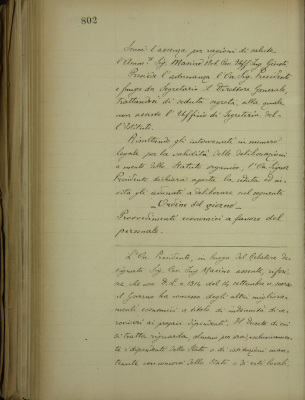 802
Scusa l'assenza per ragioni di salute
l'Amm.re Sig. Masino Not. Cav. Uff. Ing.
Presiede l'adunanza l'On. Sig. Presidente
e funge da Segretario il Direttore Generale,
trattandosi di seduta segreta alla quale
non assiste l'Ufficio di Segreteria del-
l'Istituto.
Risultando gli intervenuti in numero
legale per la validità delle deliberazioni
a mente dello Statuto organico l'On. Signor
Presidente dichiara aperta la seduta ed in-
vita gli adunati a deliberare sul seguente
Ordine del giorno
Provvedimenti economici a favore del
personale.
L'On. Presidente, in luogo del Relatore de-
signato Sig. Cav. Ing. Masino assente, riferi-
sce che con D. L. n. 1314 del 14 settembre u. scorso
il Governo ha concesso degli altri migliora-
menti economici a titolo di indennità di ca-
roviveri ai propri dipendenti. Il Decreto di cui
si tratta riguarda, almeno per ora, esclusivamente
i dipendenti dello Stato o di istituzioni man-
tenute con concorso dello Stato o di enti locali,